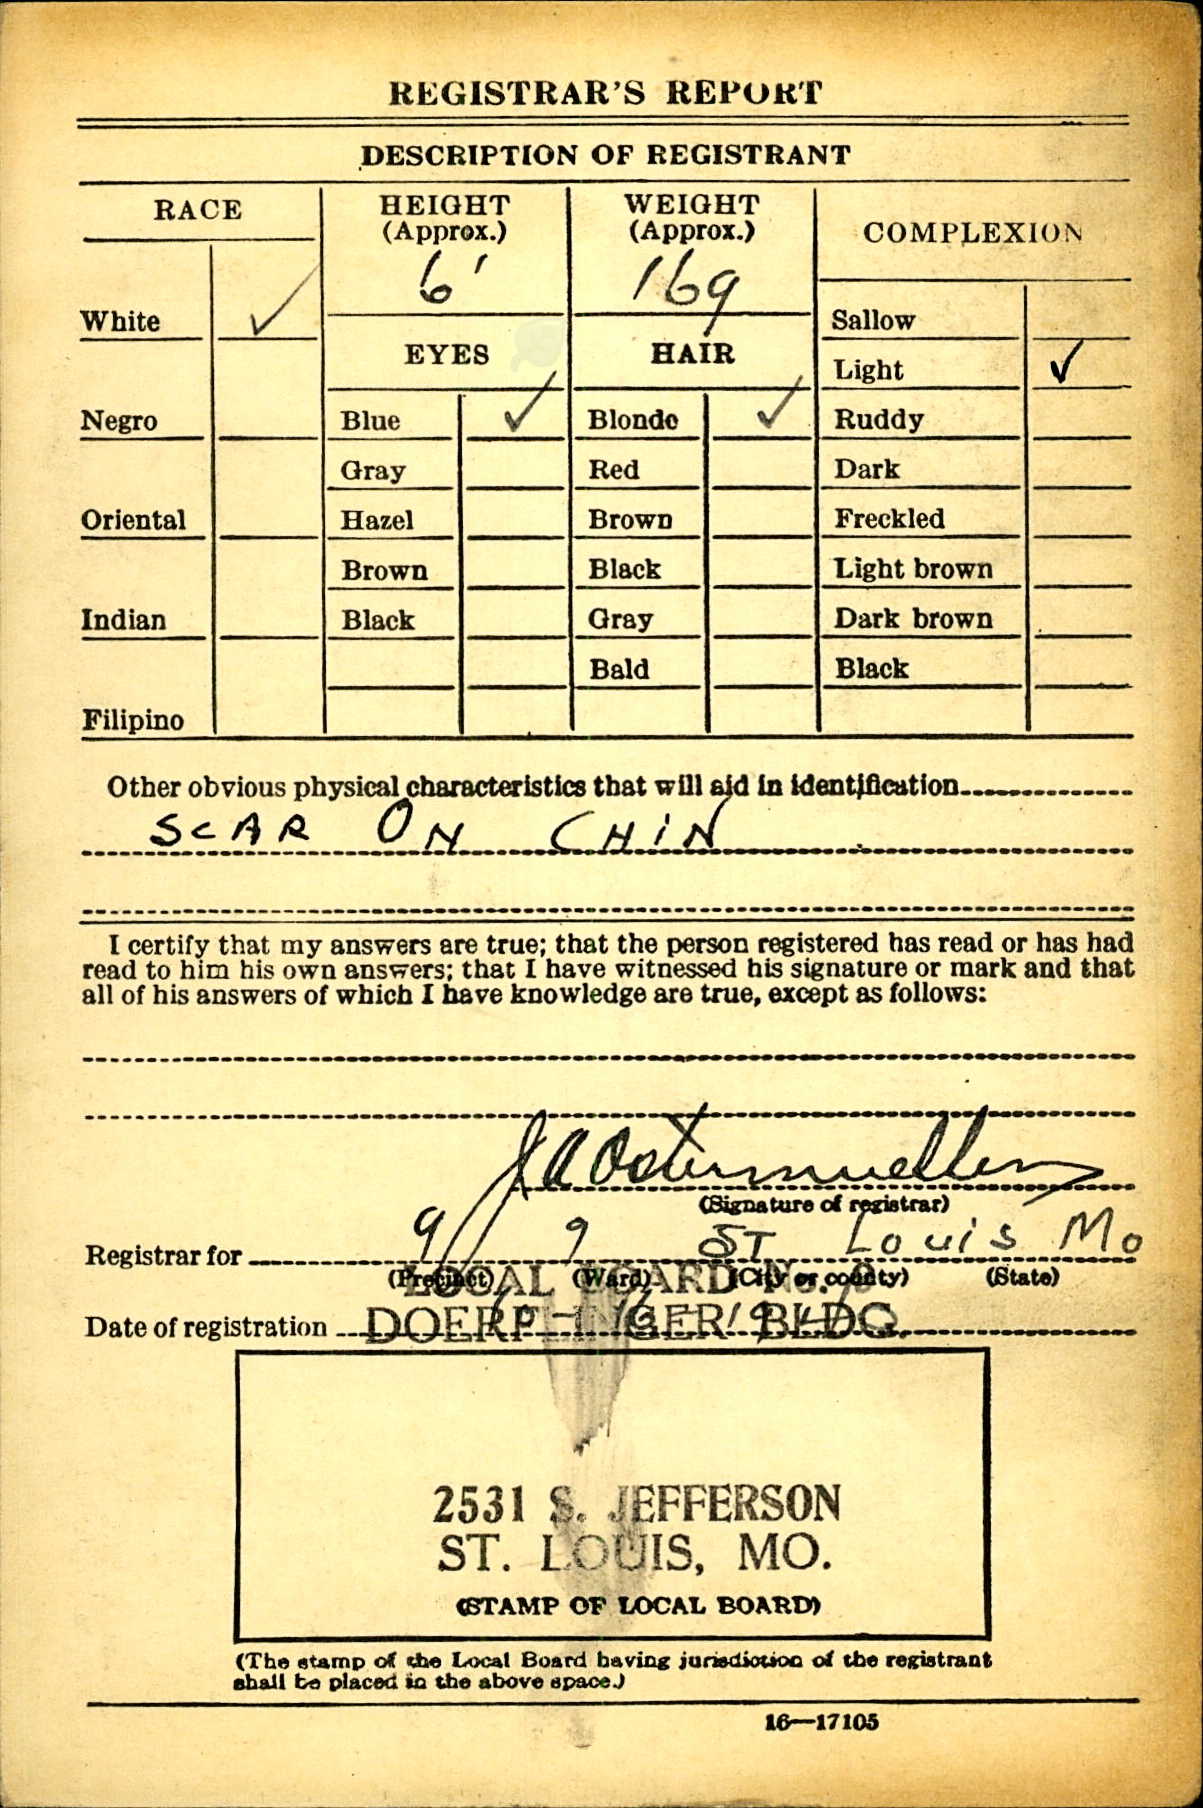 REGISTRAR'S REPORT
DESCRIPTION OF REGISTRANT
RACE
HEIGHT
(Approx.)
WEIGHT
(Approx.)
COMPLEXION
6'
169
White ✓
EYES
HAIR
Sallow
Light ✓
Negro
Blue ✓
Blonde ✓
Ruddy
Gray
Red
Dark
Oriental
Hazel
Brown
Freckled
Brown
Black
Light brown
Indian
Black
Gray
Dark brown
Bald
Black
Filipino
Other obvious physical characteristics that will aid in identification
SCAR ON CHIN
I certify that my answers are true; that the person registered has read or has had
read to him his own answers; that I have witnessed his signature or mark and that
all of his answers of which I have knowledge are true, except as follows:
J A Ostermueller
(Signature of registrar)
Registrar for 9 9 ST Louis Mo
(Precinct) (Ward) (City or county) (State)
LOCAL BOARD No. 9
Date of registration 10-16-1940
DOERPHINGER BLDG.
2531 S. JEFFERSON
ST. LOUIS, MO.
(STAMP OF LOCAL BOARD)
(The stamp of the Local Board having jurisdiction of the registrant
shall be placed in the above space.)
16—17105